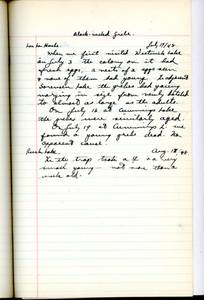 Black-necked Grebe.
July 19/48
When we first visited Westwick Lake
on July 3 the colony on it had
fresh eggs, 2 nests of 2 eggs seen
& none of them had young. In adjacent
Sorenson Lake the grebes had young
varying in size from newly hatched
to almost as large as the adults.
On July 16 at Cummings Lake
the grebes were similarly aged.
On July 19 at Cummings L. we
found a young grebe dead. No
apparent cause.
Rush Lake. Aug. 18, 48
In the trap took a ♀ & a very
small young - not more than a
week old.